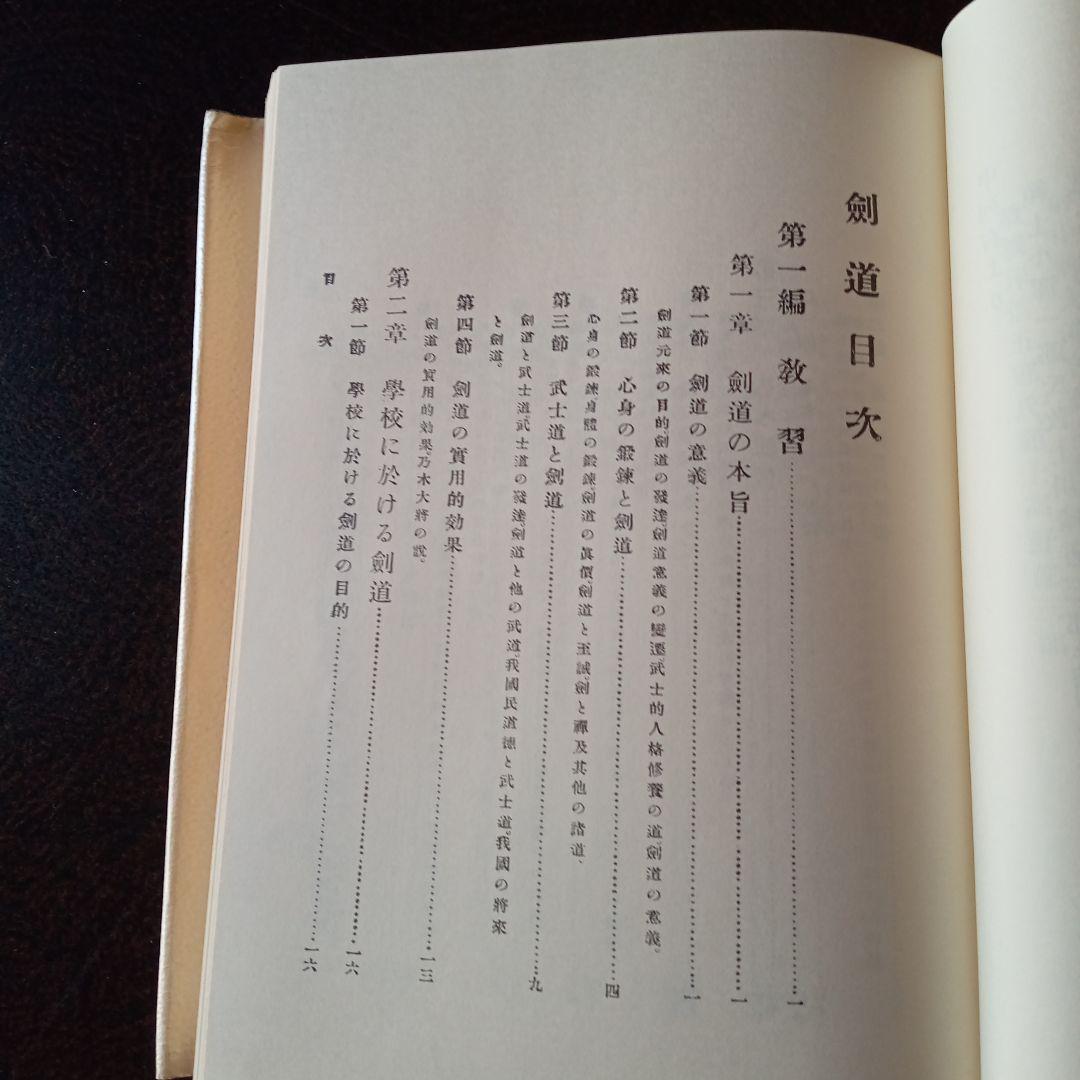 劍道目次
第一編 教習……一
第一章 劍道の本旨……一
第一節 劍道の意義……一
劍道元來の目的。劍道の發達。劍道意義の變遷。武士的人格修養の道。劍道の意義。
第二節 心身の鍛鍊と劍道……四
心身の鍛鍊。身體の鍛鍊。劍道の眞價。劍道と至誠。劍と禪及其他の諸道、
第三節 武士道と劍道……九
劍道と武士道。武士道の發達。劍道と他の武道。我國民道德と武士道。我國の將來
と劍道。
第四節 劍道の實用的効果……一三
劍道の實用的効果。乃木大將の說。
第二章 學校に於ける劍道……一六
第一節 學校に於ける劍道の目的……一六
目次